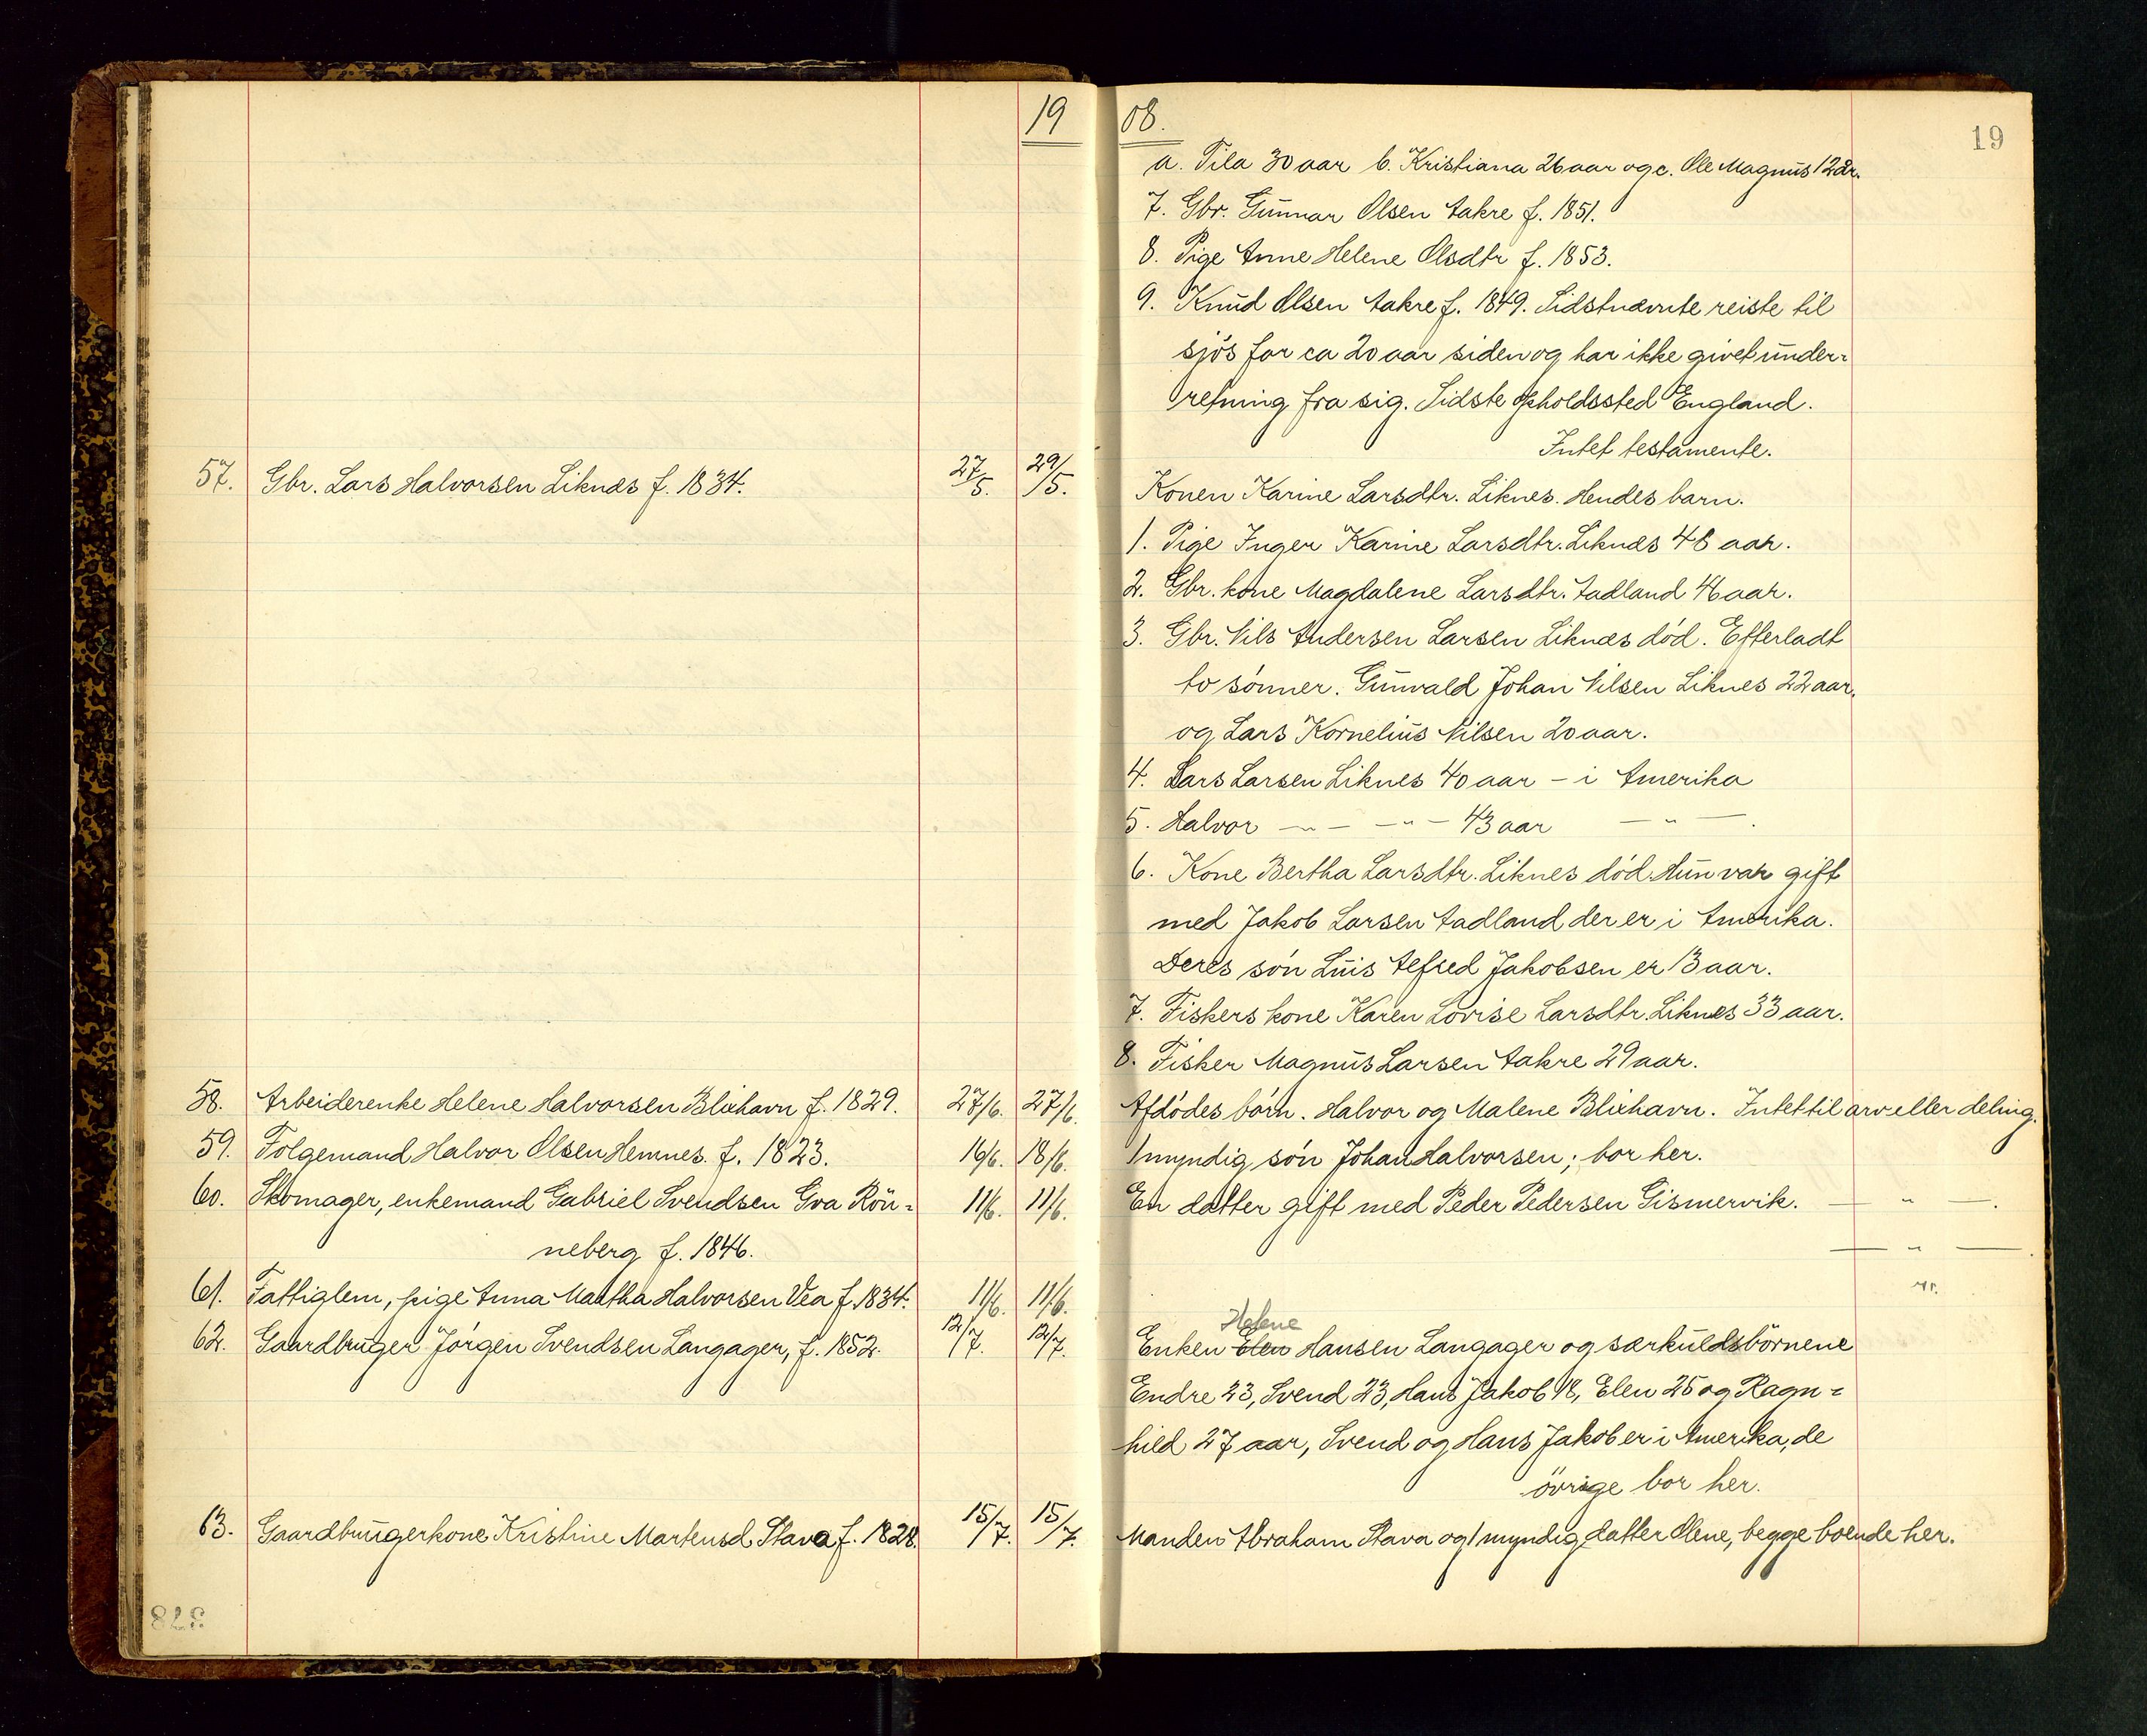 1908.
19
a. Tila 30 aar b. Kristiana 26 aar og c. Ole Magnus 12 aar.
7. Gbr. Gunnar Olsen Aakre f. 1851.
8. Pige Anne Helene Olsdtr f. 1853.
9. Knud Olsen Aakre f. 1849. Sidstnævnte reiste til
sjös for ca 20 aar siden og har ikke givet under-
retning fra sig. Sidste opholdssted England.
Intet testamente.
57. Gbr. Lars Halvorsen Liknes f. 1834. 27/5. 29/5. Konen Karine Larsdtr. Liknes. Hendes barn.
1. Pige Inger Karine Larsdtr. Liknes 48 aar.
2. Gbr. kone Magdalene Larsdtr. Aadland 46 aar.
3. Gbr. Nils Andersen Larsen Liknes död. Efterladt
to sönner. Gunvald Johan Nilsen Liknes 22 aar.
og Lars Kornelius Nilsen 20 aar.
4. Lars Larsen Liknes 40 aar – i Amerika
5. Halvor —"— —"— 43 aar —"—.
6. Kone Bertha Larsdtr. Liknes död. Hun var gift
med Jakob Larsen Aadland der er i Amerika.
Deres sön Luis Alfred Jakobsen er 13 aar.
7. Fiskers kone Karen Lovise Larsdtr. Liknes 33 aar.
8. Fisker Magnus Larsen Aakre 29 aar.
58. Arbeiderenke Helene Halvorsen Blixhavn f. 1829. 27/6. 27/6. Afdödes börn. Halvor og Malene Blixhavn. Intet til arv eller deling.
59. Folgemand Halvor Olsen Hemnes. f. 1823. 16/6. 18/6. 1 myndig sön Johan Halvorsen; bor her.
60. Skomager, enkemand Gabriel Svendsen Gva Rön- 11/6. 11/6. En datter gift med Peder Pedersen Gismervik. —"—.
neberg f. 1846. —"—.
61. Fattiglem, pige Anna Martha Halvorsen Vea f. 1834. 11/6. 11/6.
Helene
62. Gaardbruger Jörgen Svendsen Langager, f. 1852. 12/7. 12/7. Enken Elen Hansen Langager og særkuldsbörnene
Endre 23, Svend 23, Hans Jakob 18, Elen 25 og Ragn-
hild 27 aar, Svend og Hans Jakob er i Amerika, de
övrige bor her.
63. Gaardbrugerkone Kristine Martensd. Stava f. 1828. 15/7. 15/7. Manden Abraham Stava og 1 myndig datter Olene, begge boende her.